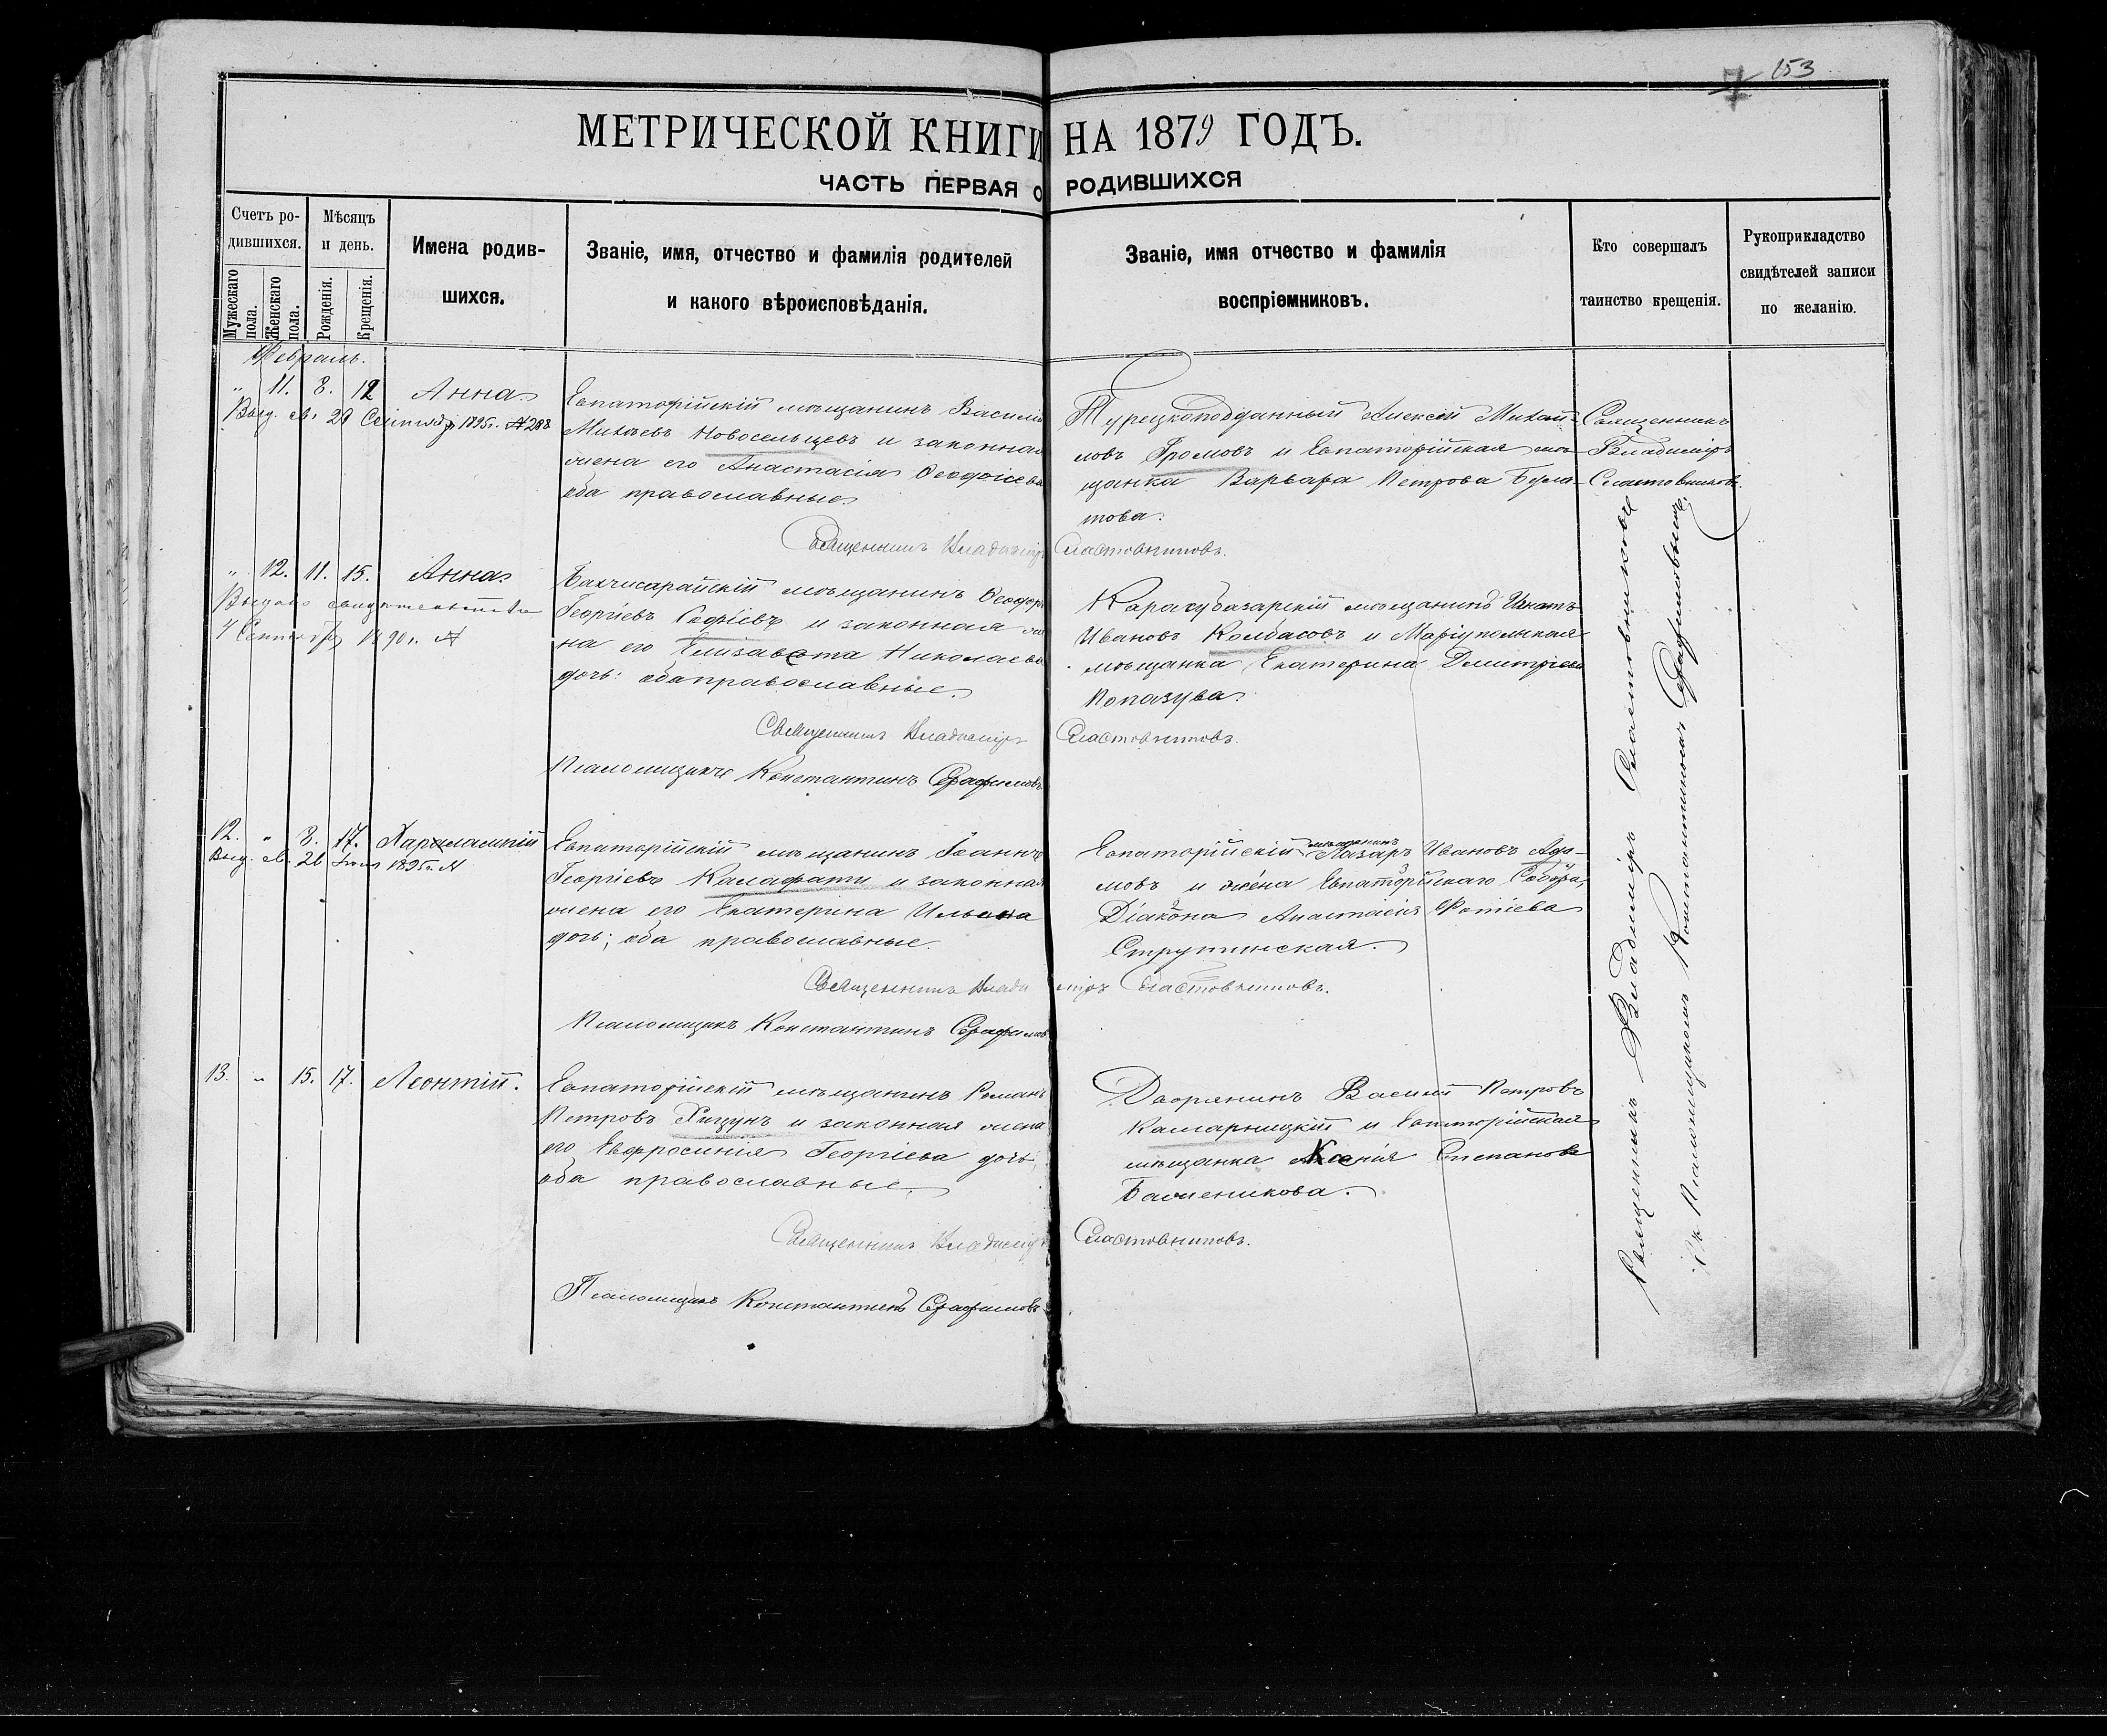 153
МЕТРИЧЕСКОЙ КНИГИ НА 1879 ГОДЪ.
ЧАСТЬ ПЕРВАЯ О РОДИВШИХСЯ
Счетъ родившихся.
Мужескаго пола.
Женскаго пола.
Мѣсяцъ и день.
Рожденія.
Крещенія.
Имена родившихся.
Званіе, имя, отчество и фамилія родителей
и какого вѣроисповѣданія.
Званіе, имя отчество и фамилія
воспріемниковъ.
Кто совершалъ
таинство крещенія.
Рукоприкладство
свидѣтелей записи
по желанію.
Февраль.
" 11. 8. 12 Анна
Выд. св. 28 Сентябр 1895г. № 288
Евпаторійскій мѣщанинъ Василій
Новосельцевъ и законная
жена его Анастасія
оба православные
Турецкоподданный Алексѣй Михай-
ловъ Громовъ и Евпаторійская мѣ-
щанка Варвара Петрова Була-
това.
Священникъ
Владиміръ
Сластовниковъ.
Священникъ Владиміръ Сластовниковъ.
" 12. 11. 15. Анна
Выдано свидѣтельство
4 Сентябр 1890г. №
Бахчисарайскій мѣщанинъ Ѳеодоръ
Георгіевъ Софіевъ и законная же
на его Елизавета Николаева
дочь: оба православные.
Карасубазарскій мѣщанинъ
Ивановъ Колбасовъ и Маріупольская
мѣщанка Екатерина Димитріева
Попазува.
Священникъ Владиміръ Сластовниковъ.
Псаломщикъ Константинъ Серафимовъ
12. " 8. 17. Харалампій
Выд. св. 26 1895г. №
Евпаторійскій мѣщанинъ Іоаннъ
Георгіевъ Калафати и законная
жена его Екатерина Ильина
дочь; оба православные.
Евпаторійскій мѣщанинъ Лазаръ Ивановъ Ада-
мовъ и жена Евпаторійскаго Собора,
Діакона Анастасія Фотіева
Струтинская.
Священникъ Владиміръ Сластовниковъ.
Псаломщикъ Константинъ Серафимовъ
13. " 15. 17. Леонтій.
Евпаторійскій мѣщанинъ Романъ
Петровъ и законная жена
его Евфросинія Георгіева дочь
оба православные.
Дворянинъ Василій Петровъ
Камарницкій и Евпаторійская
мѣщанка Ксенія Степанова
Баженикова.
Священникъ Владиміръ Сластовниковъ.
Псаломщикъ Константинъ Серафимовъ
Священникъ Владиміръ Сластовниковъ
съ Псаломщикомъ Константиномъ Серафимовымъ.